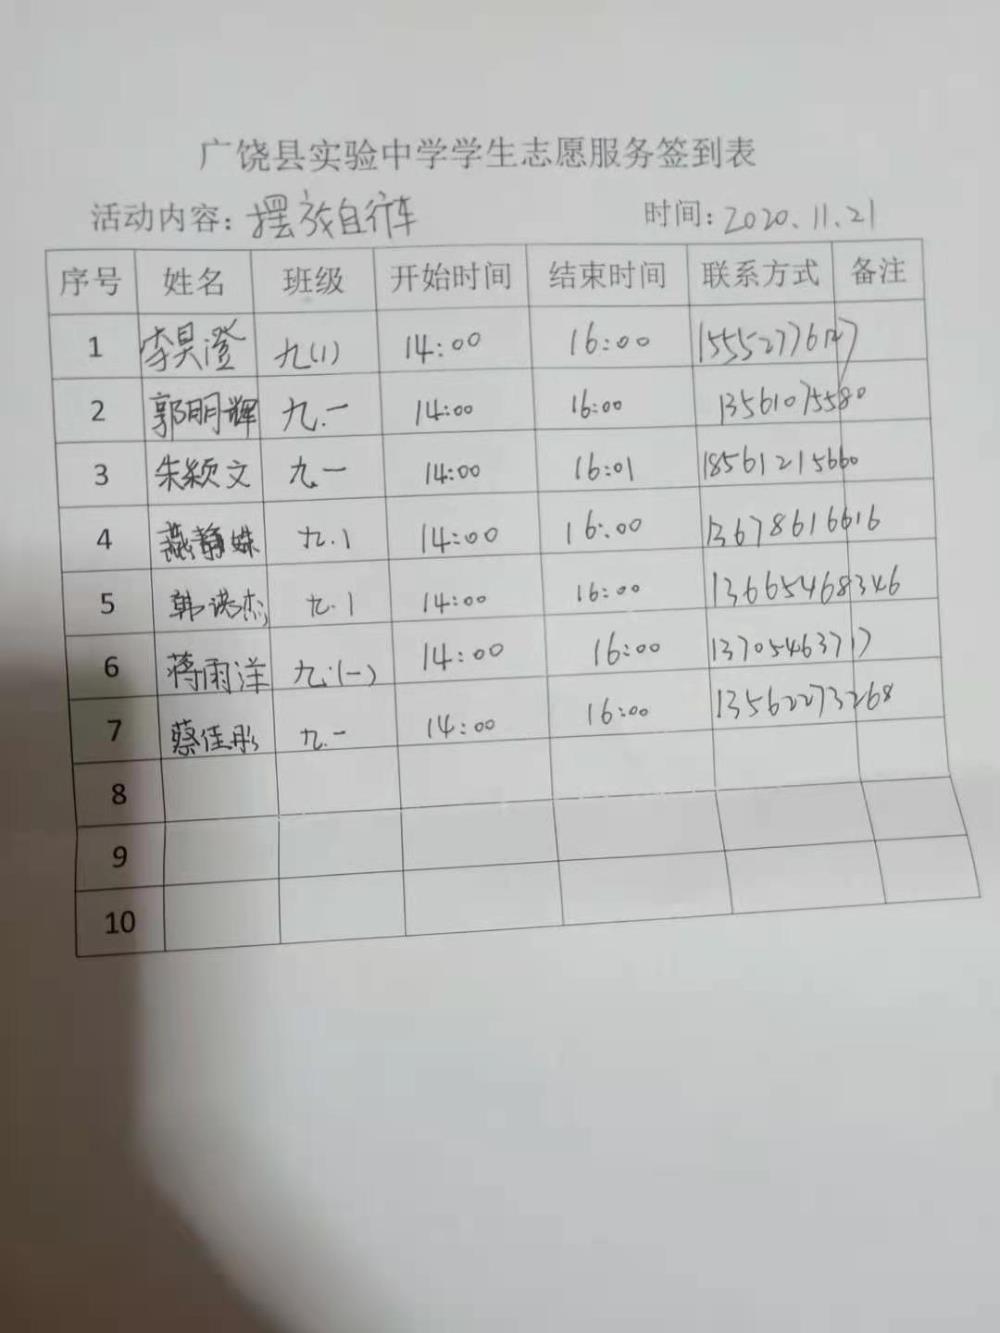 广饶县实验中学学生志愿服务签到表
活动内容: 摆放自行车 时间: 2020.11.21
序号 姓名 班级 开始时间 结束时间 联系方式 备注
1 李昊澄 九(1) 14:00 16:00
2 郭明辉 九.一 14:00 16:00 13561075580
3 朱颖文 九.一 14:00 16:01 18561215660
4 燕静姝 九.1 14:00 16:00 13678616616
5 韩洪杰 九.1 14:00 16:00 13665468346
6 蒋雨洋 九.(一) 14:00 16:00 13705463717
7 蔡佳彤 九.一 14:00 16:00 13562273268
8
9
10